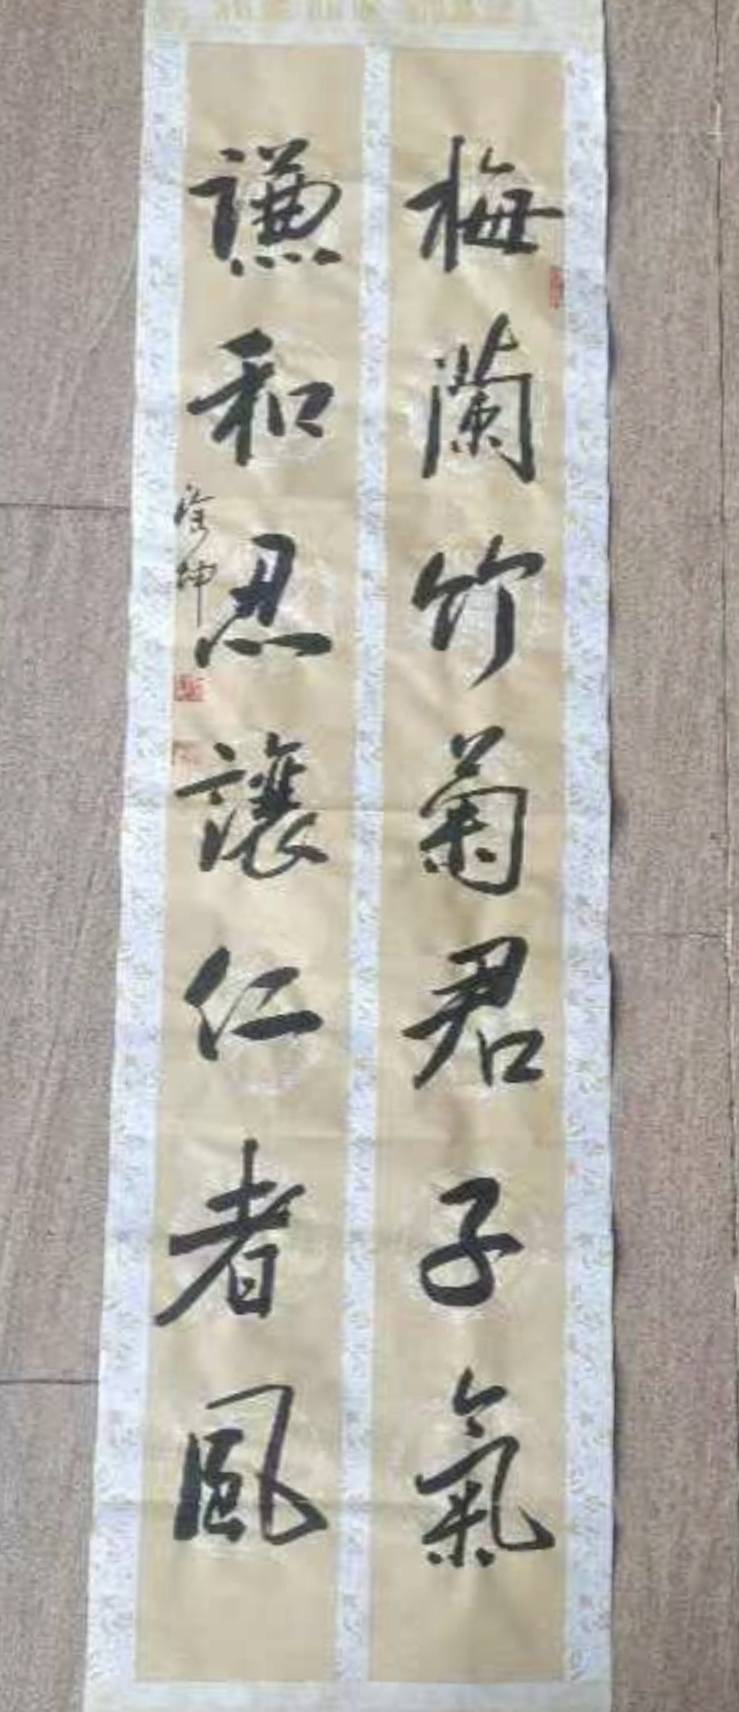 梅蘭竹菊君子氣
謙和忍讓仁者風
徐坤